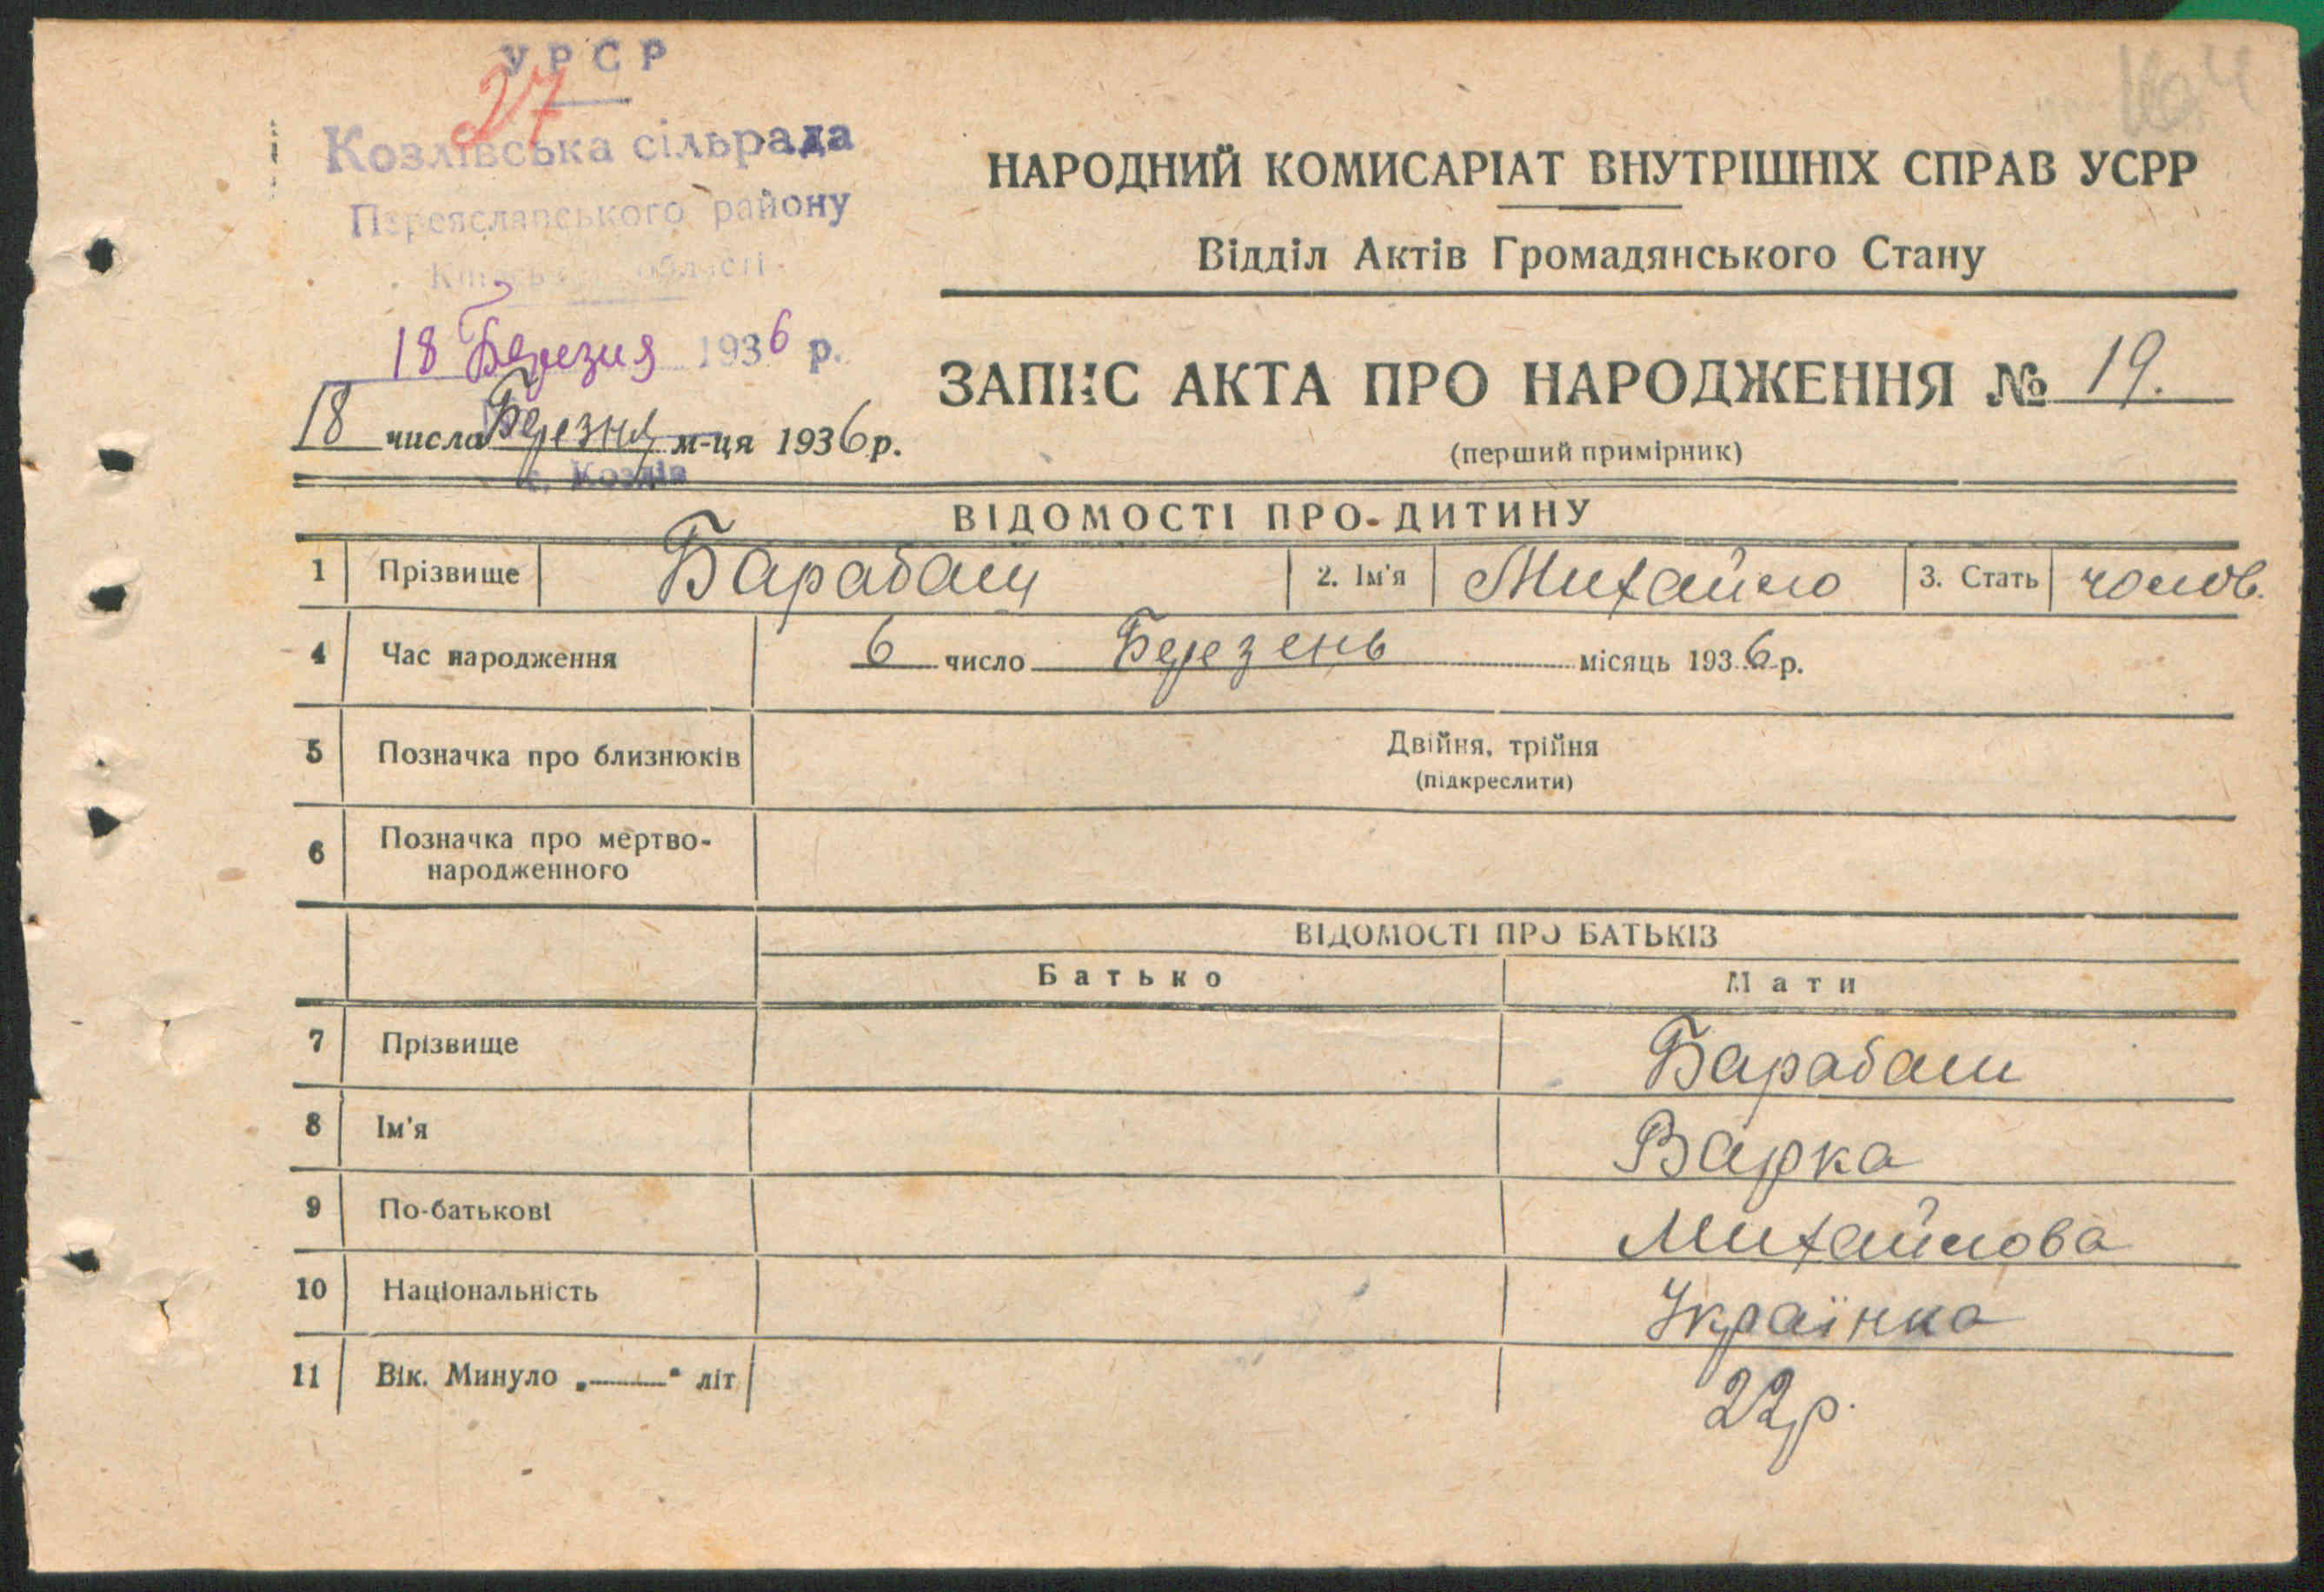 УРСР
27
Козлівська сільрада
Переяславського району
області
18 Березня 1936 р.
18 числа Березня м-ця 1936 р.
с. Козлів
НАРОДНИЙ КОМИСАРІАТ ВНУТРІШНІХ СПРАВ УСРР
Відділ Актів Громадянського Стану
ЗАПИС АКТА ПРО НАРОДЖЕННЯ № 19.
(перший примірник)
ВІДОМОСТІ ПРО ДИТИНУ
1 Прізвище Барабаш 2. Ім'я Михайло 3. Стать чолов.
4 Час народження 6 число Березень місяць 1936 р.
5 Позначка про близнюків Двійня, трійня
(підкреслити)
6 Позначка про мертво-
народженного
ВІДОМОСТІ ПРО БАТЬКІВ
Батько Мати
7 Прізвище Барабаш
8 Ім'я Варка
9 По-батькові Михайлова
10 Національність Українка
11 Вік. Минуло „ — " літ 22 р.